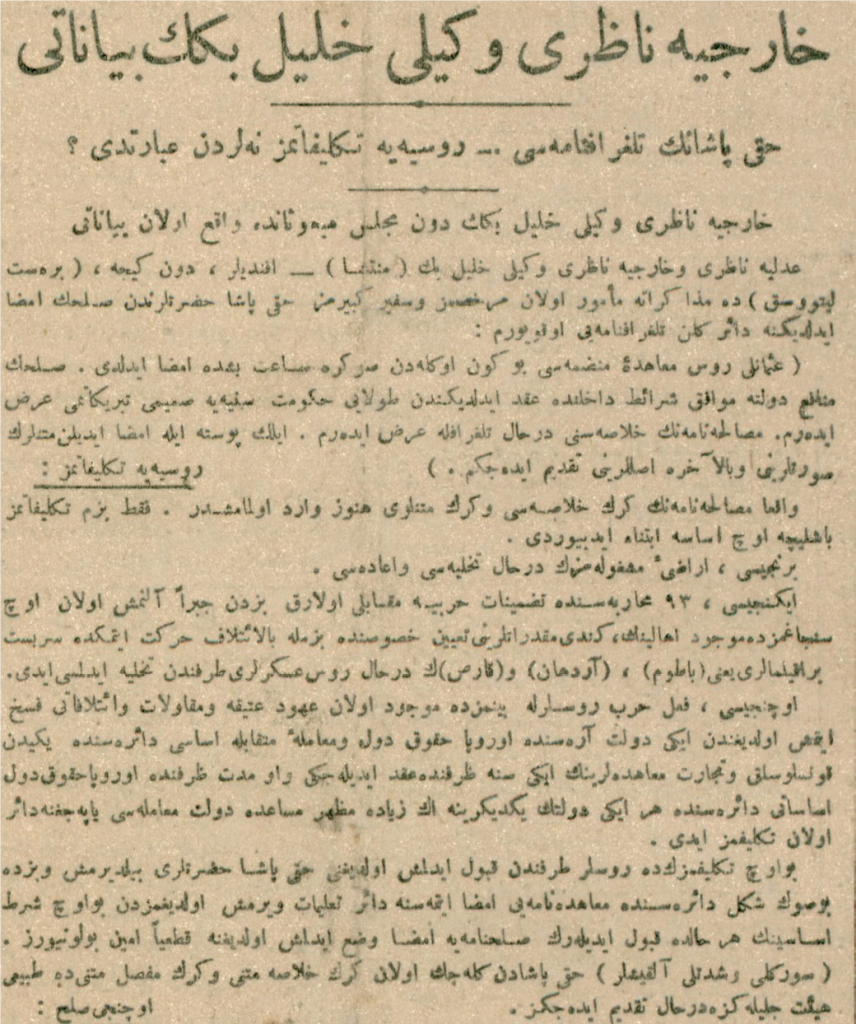 خارجیه ناظری وکیلی خلیل بكك بیاناتی
حقی پاشانك تلغرافنامه‌سی — روسیه‌یه تکلیفاتمز نه‌لردن عبارتدی ؟
خارجیه ناظری وکیلی خلیل بكك دون مجلس مبعوثانده واقع اولان بیاناتی
عدلیه ناظری وخارجیه ناظری وکیلی خلیل بك ( منتشا ) — افندیلر ، دون کیجه ، ( بره‌ست
لیتووسق ) ده مذاکراته مأمور اولان مرخصمز وسفیر کبیرمز حقی پاشا حضرتلرندن صلحك امضا
ایدلدیکنه دائر کلن تلغرافنامه‌یی اوقویورم :
( عثمانلی روس معاهدۀ منضمه‌سی بو کون اوکله‌دن صوکره ساعت بشده امضا ایدلدی . صلحك
منافع دولته موافق شرائط داخلنده عقد ایدلدیکندن طولایی حکومت سنیه‌یه صمیمی تبریکاتمی عرض
ایده‌رم. مصالحه‌نامه‌نك خلاصه‌سنی درحال تلغرافله عرض ایده‌رم . ایلك پوسته ایله امضا ایدیلن متنلرك
صورتلرینی وبالآخره اصللرینی تقدیم ایده‌جکم . )
روسیه‌یه تکلیفاتمز :
واقعا مصالحه‌نامه‌نك کرك خلاصه‌سی وکرك متنلری هنوز وارد اولمامشدر . فقط بزم تکلیفاتمز
باشلیجه اوچ اساسه ابتناء ایدییوردی .
برنجیسی ، اراضیٔ مشغوله‌مزك درحال تخلیه‌سی واعاده‌سی .
ایکنجیسی ، ٩٣ محاربه‌سنده تضمینات حربیه مقابلی اولارق بزدن جبراً آلنمش اولان اوچ
سنجاغمزده موجود اهالینك، کندی مقدراتلرینی تعیین خصوصنده بزمله بالائتلاف حرکت ایتمکده سربست
براقیلمالری یعنی (باطوم) ، (آردهان) و(قارص)ك درحال روس عسکرلری طرفندن تخلیه ایدلمسی ایدی.
اوچنجیسی ، فعل حرب روسلرله بینمزده موجود اولان عهود عتیقه ومقاولات وائتلافاتی فسخ
ایتمش اولدیغندن ایکی دولت آره‌سنده اوروپا حقوق دول ومعاملۀ متقابله اساسی دائره‌سنده یکیدن
قونسلوسلق وتجارت معاهده‌لرینك ایکی سنه ظرفنده عقد ایدیله‌جکی واو مدت ظرفنده اوروپا حقوق دول
اساساتی دائره‌سنده هر ایکی دولتك یکدیکرینه اك زیاده مظهر مساعده دولت معامله‌سی یاپه‌جغنه دائر
اولان تکلیفمز ایدی .
بو اوچ تکلیفمزك ده روسلر طرفندن قبول ایدلمش اولدیغنی حقی پاشا حضرتلری بیلدیرمش وبزده
بوصوك شکل دائره‌سنده معاهده‌نامه‌یی امضا ایتمه‌سنه دائر تعلیمات ویرمش اولدیغمزدن بو اوچ شرط
اساسینك هر حالده قبول ایدیله‌رك صلحنامه‌یه امضا وضع ایدلمش اولدیغنه قطعیاً امین بولونیورز .
( سورکلی وشدتلی آلقیشلر ) حقی پاشادن کله‌جك اولان کرك خلاصه متنی وکرك مفصل متنی ده طبیعی
هیئت جلیله‌کزه درحال تقدیم ایده‌جکز .
اوچنجی صلح :